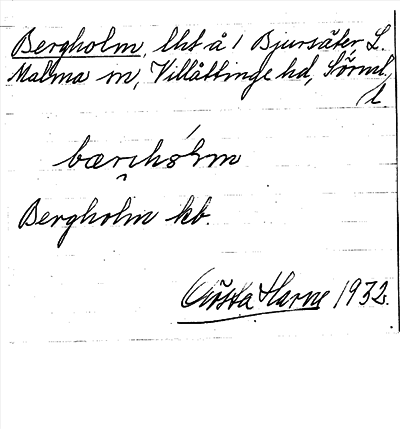 Bergholm, lht å 1 Bjursäter, L.
Malma sn, Villåttinge hd, Sörml.
bær̯ihólm
Bergholm kb.
Gösta Harne 1932.